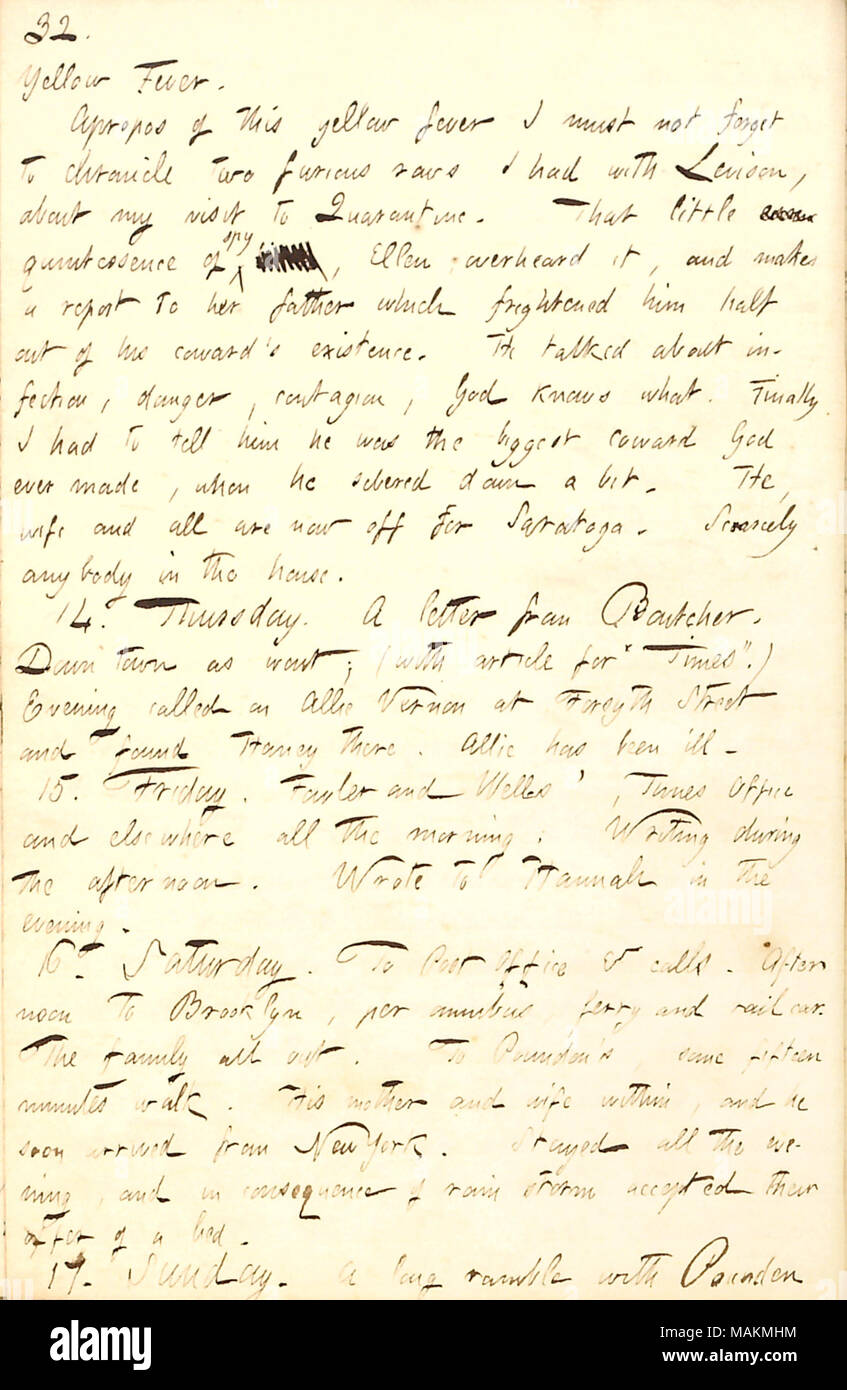 32.
Yellow Fever.
Apropos of this yellow fever I must not forget
to chronicle two furious rows I had with Levison,
about my visit to Quarantine. That little
spy
quintessence of , Ellen overheard it, and makes
a report to her father which frightened him half
out of his coward's existence. He talked about in-
fection, danger, contagion, God knows what. Finally
I had to tell him he was the biggest coward God
ever made, when he sobered down a bit. He,
wife and all are now off for Saratoga. Scarcely
anybody in the house.
14. Thursday. A letter from Boutcher.
Down town as wont; (with article for "Times".)
Evening called on Allie Vernon at Forsyth Street
and found Haney there. Allie has been ill.
15. Friday. Fowler and Wells', Times Office
and elsewhere all the morning. Writing during
the afternoon. Wrote to Hannah in the
evening.
16. Saturday. To Post Office & calls. After
noon to Brooklyn, per omnibus, ferry and rail car.
The family all out. To Pounden's, some fifteen
minutes walk. His mother and wife within, and he
soon arrived from New York. Stayed all the eve-
ning, and in consequence of rain storm accepted their
offer of a bed.
17. Sunday. A long ramble with Pounden
alamy
Image ID: MAKMHM
www.alamy.com